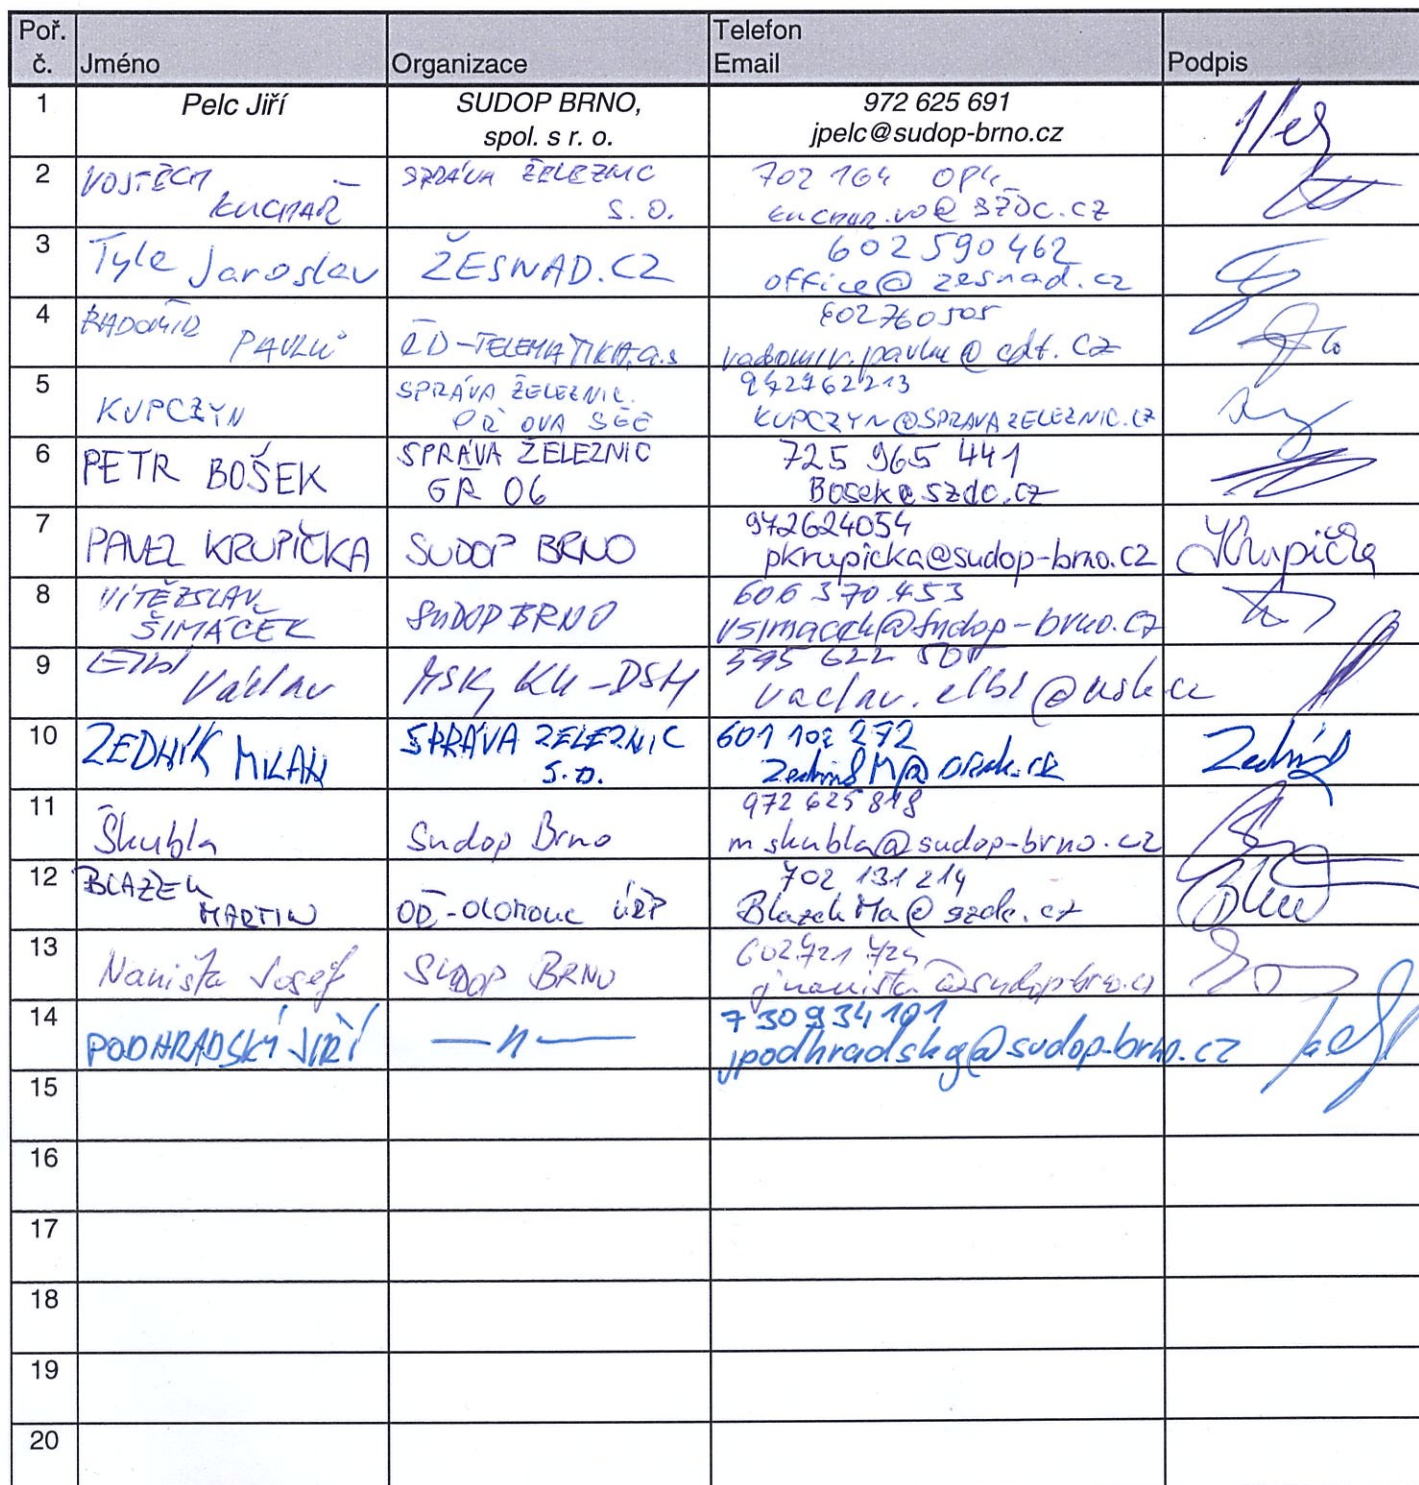 Poř. č. Jméno Organizace Telefon Email Podpis
1 Pelc Jiří SUDOP BRNO, spol. s r. o. 972 625 691 jpelc@sudop-brno.cz
2 VOJTĚCH KUCHAŘ SPRÁVA ŽELEZNIC S. O. 702 164
3 Tyle Jaroslav ŽESNAD.CZ 602 590 462 office@zesnad.cz
4 RADOMÍR PAVLŮ ČD-TELEMATIKA, a.s 602760505 radomir.pavlu@cdt.cz
5 KUPCZYN SPRÁVA ŽELEZNIC. OŘ OVA SEE 972762213 KUPCZYN@SPRAVAZELEZNIC.CZ
6 PETR BOŠEK SPRÁVA ŽELEZNIC GŘ O6 725 965 441 Bosek@szdc.cz
7 PAVEL KRUPIČKA SUDOP BRNO 972624054 pkrupicka@sudop-brno.cz Krupička
8 VÍTĚZSLAV ŠIMÁČEK SUDOP BRNO 606 370 453 vsimacek@sudop-brno.cz
9 Elbl Václav MSK, KÚ-DSH 595 622 vaclav.elbl@msk.cz
10 ZEDNÍK MILAN SPRÁVA ŽELEZNIC S.O. 601 102 272 Zedník
11 Škubla Sudop Brno 972 625 818 mskubla@sudop-brno.cz
12 BLAŽEK MARTIN OŘ-Olomouc ÚŘP 702 131 214 BlazekMa@szdc.cz
13 Naništa Josef SUDOP BRNO 602 721 jnanista@sudop-brno.cz
14 PODHRADSKÝ JIŘÍ —"— 730934101 jpodhradsky@sudop-brno.cz
15
16
17
18
19
20